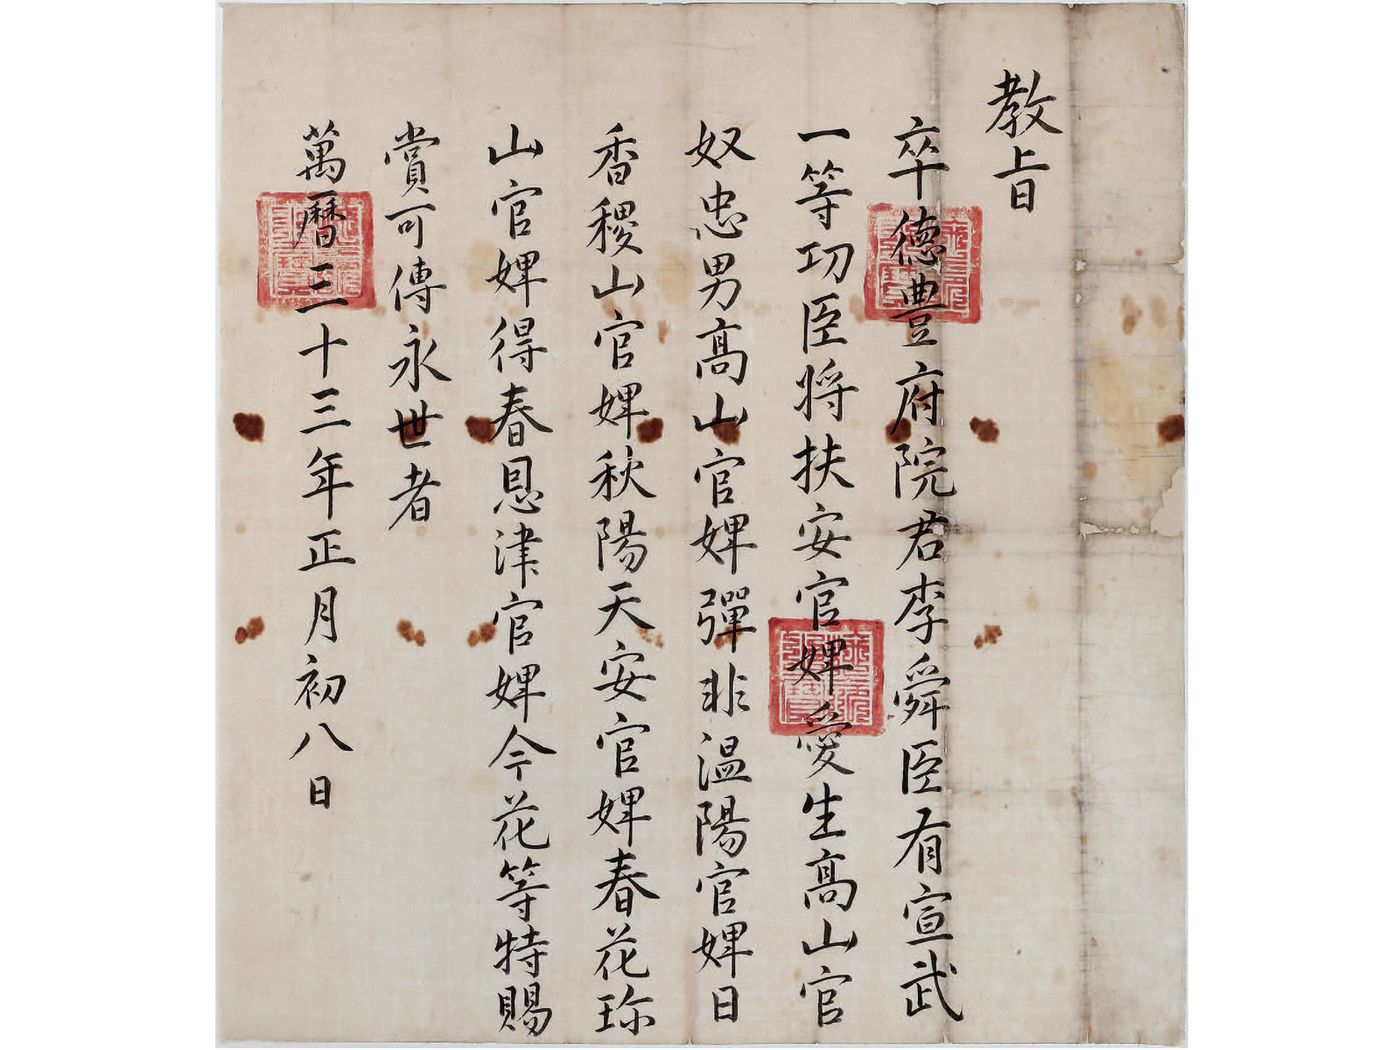 教旨
卒德豊府院君李舜臣有宣武
一等功臣将扶安官婢愛生高山官
奴忠男高山官婢彈非溫陽官婢日
香稷山官婢秋陽天安官婢春花珎
山官婢得春恩津官婢今花等特賜
賞可傳永世者
萬曆三十三年正月初八日